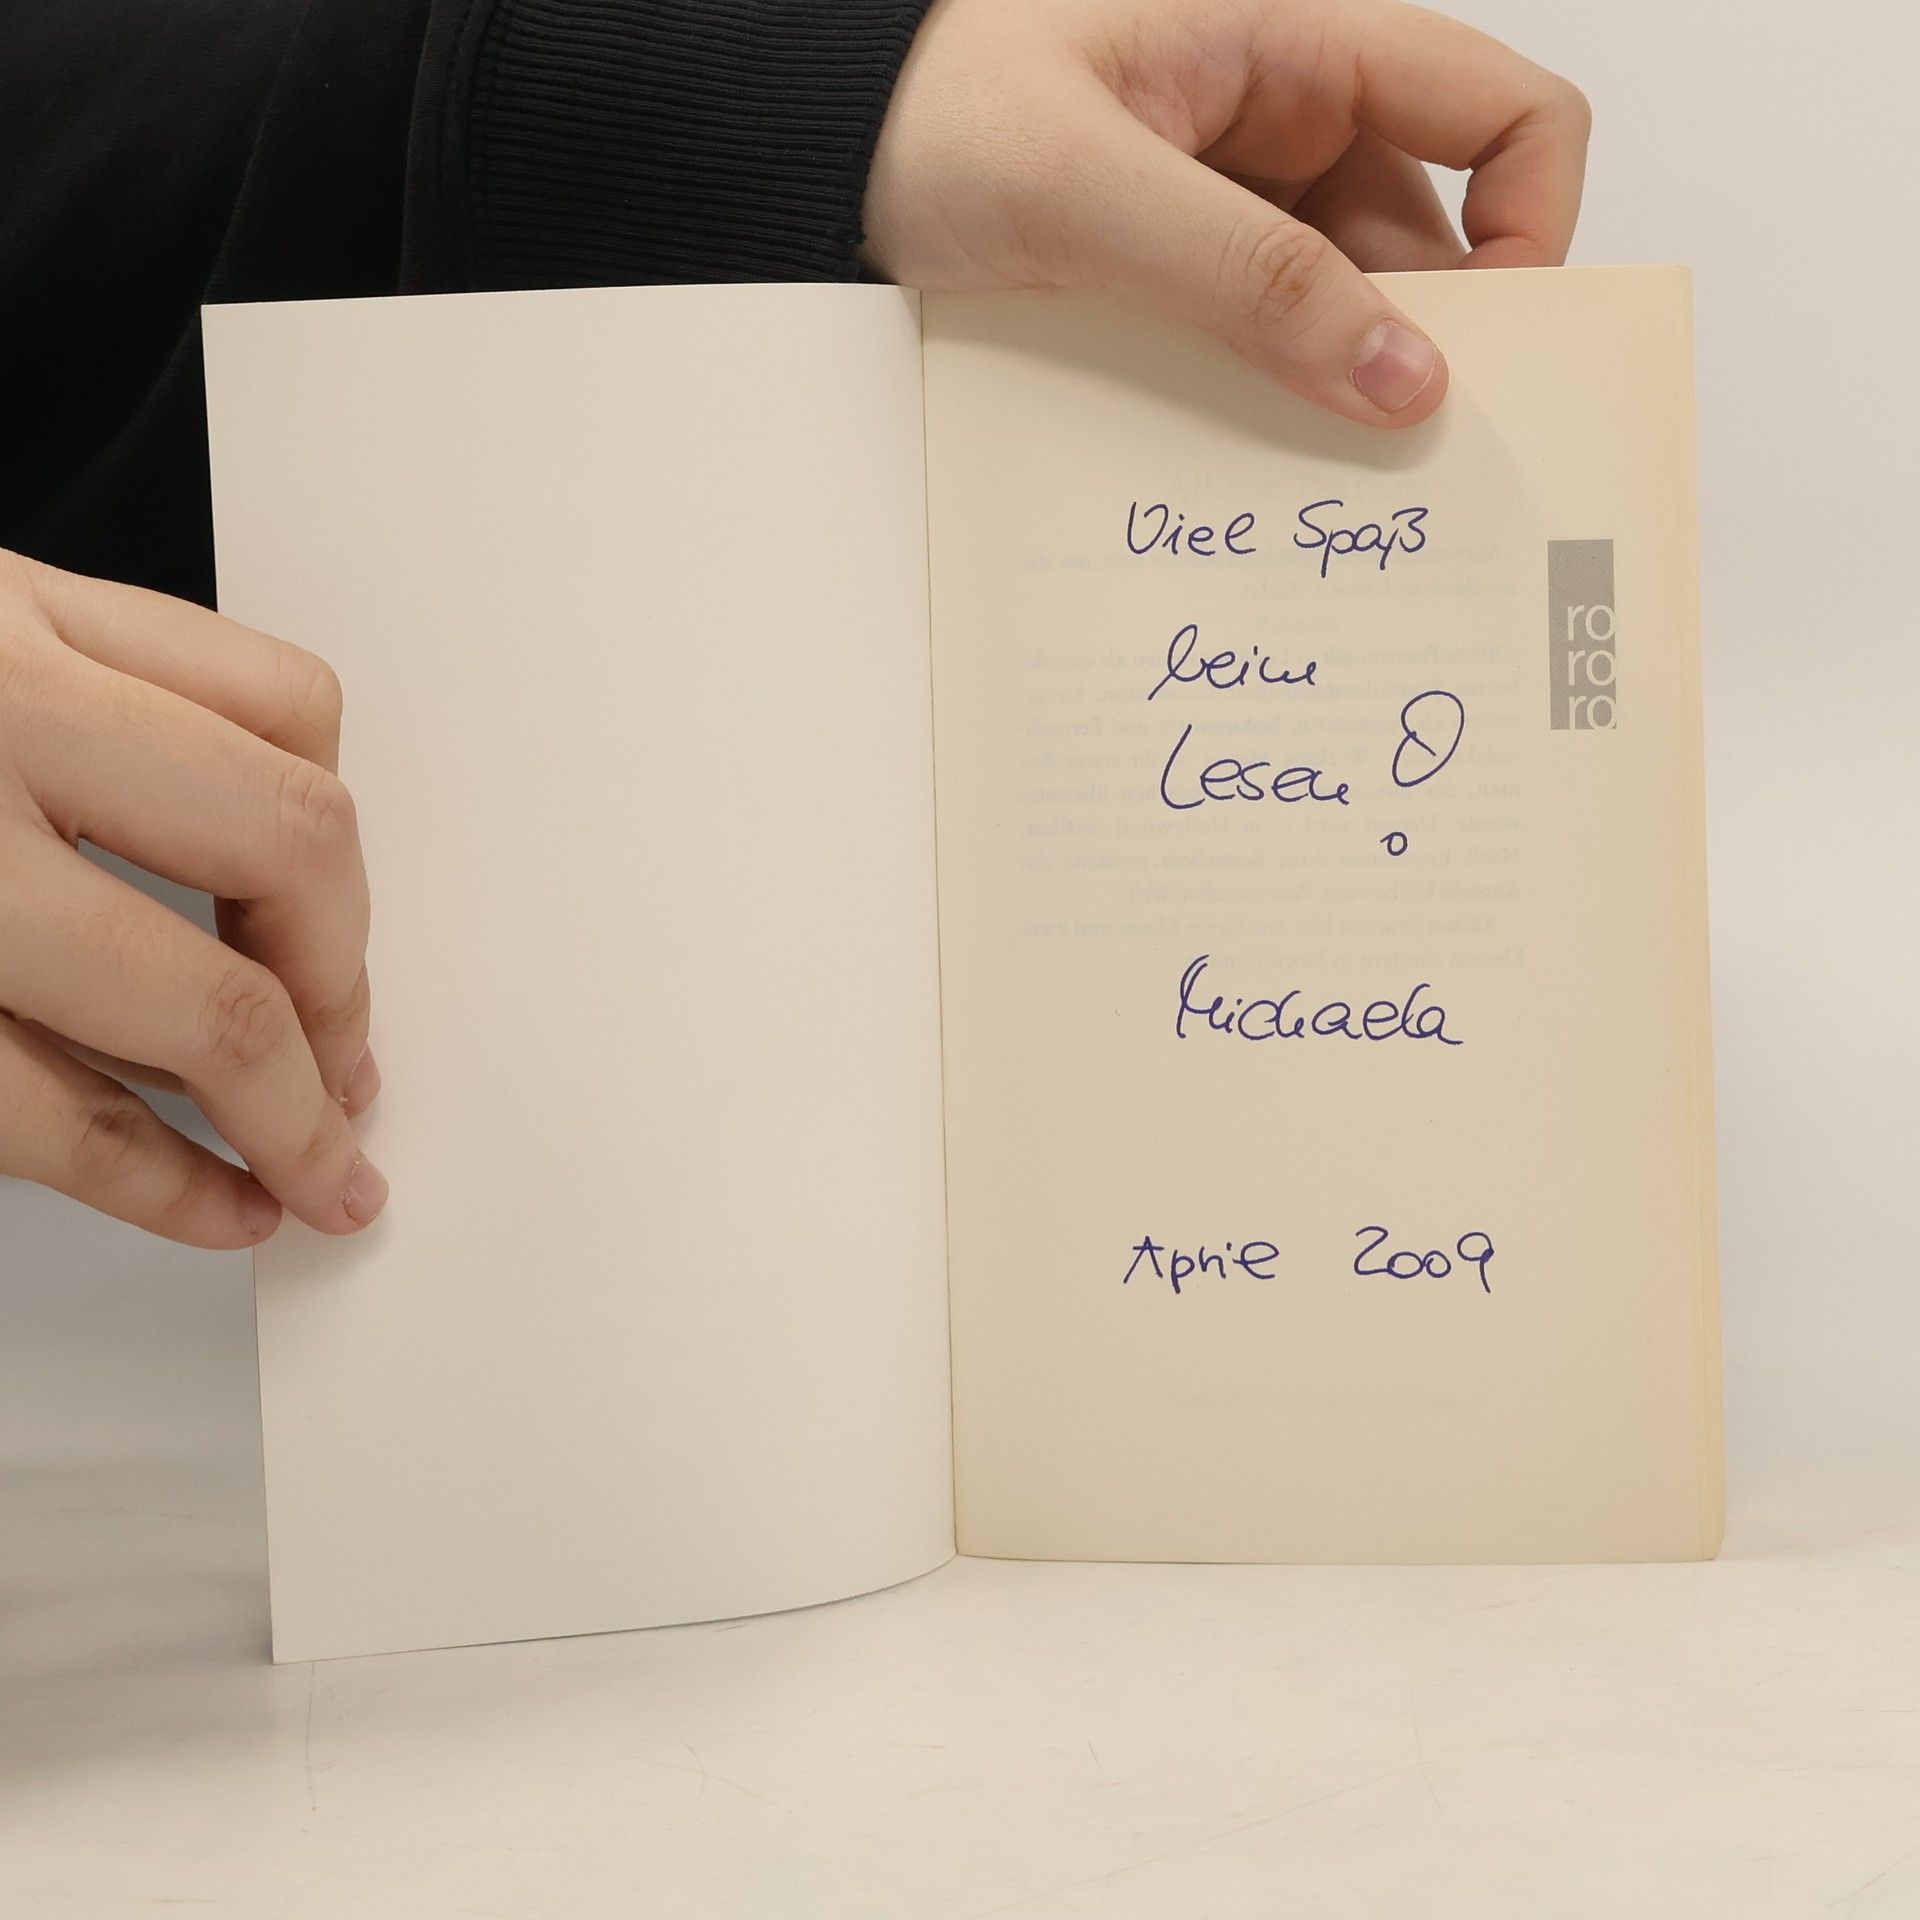 Viel Spaß
beim
Lesen!
Michaela
April 2009
ro
ro
ro